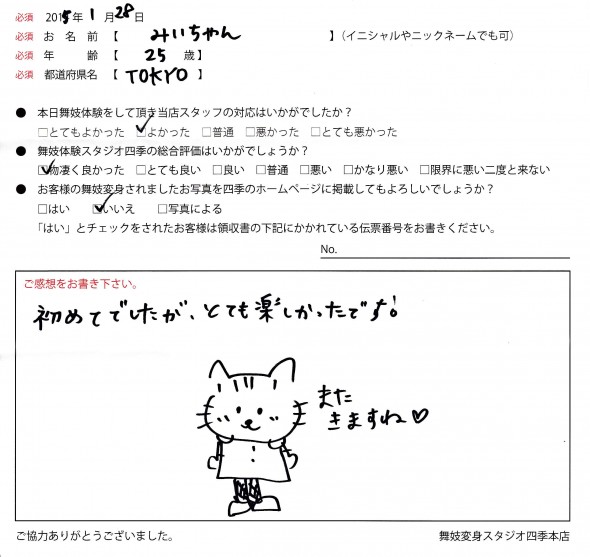 必須 2015年 1月 28日
必須 お 名 前 【 みいちゃん 】(イニシャルやニックネームでも可)
必須 年 齢 【 25 歳】
必須 都道府県名 【 TOKYO 】
● 本日舞妓体験をして頂き当店スタッフの対応はいかがでしたか？
□とてもよかった ☑よかった □普通 □悪かった □とても悪かった
● 舞妓体験スタジオ四季の総合評価はいかがでしょうか？
☑物凄く良かった □とても良い □良い □普通 □悪い □かなり悪い □限界に悪い二度と来ない
● お客様の舞妓変身されましたお写真を四季のホームページに掲載してもよろしいでしょうか？
□はい ☑いいえ □写真による
「はい」とチェックをされたお客様は領収書の下記にかかれている伝票番号をお書きください。
No.
ご感想をお書き下さい。
初めてでしたが、とても楽しかったです!
また
きますね♡
ご協力ありがとうございました。 舞妓変身スタジオ四季本店